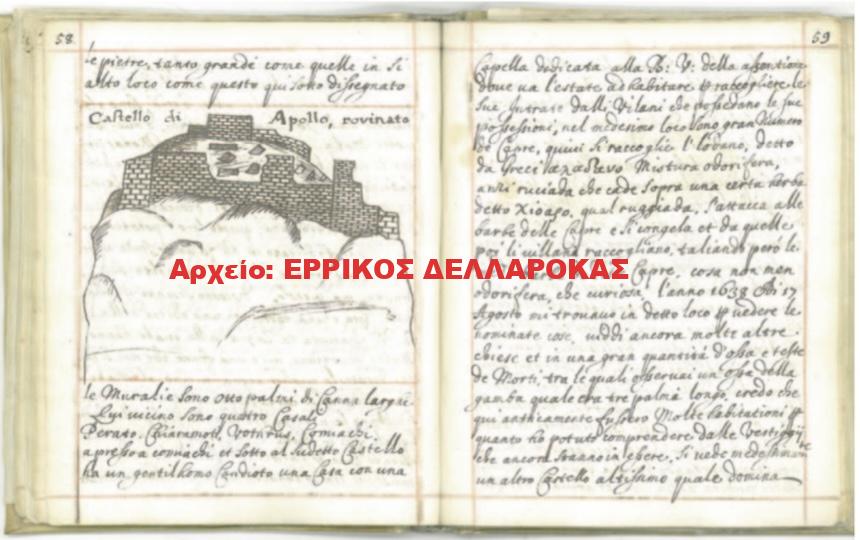 58
le pietre, tanto grandi come quelle in si
alto loco come questo qui sotto dissegnato
Castello di Apollo, rovinato
le Muralie sono otto palmi di Canna larghe
Lui vicino sono quattro Casali
Perato, Chiaramoti, Votnrus, Comiachi,
apresso a comiachi et sotto al sudetto Castello
ha un gentilhomo Candioto una Casa con una
59
Capella dedicata alla B: V: della assontione
doue ua l'estate ad habitare raccogliere le
sue Intrate dalli Vilani che possedano le sue
possessioni, nel medesimo loco sono gran Numero
de Capre, quiui si raccoglie l'lodano, detto
da Greci Mistura odorifera,
anzi ruciada che cade sopra una certa herba
detto qual ruggiada, s'attacca alle
barbe delle Capre e si congela et da quelle
poi li uillani raccogliano, taliando però le
Capre, cosa non men
odorifera, che curiosa, l'anno 1638 Adi 17
Agosto mi trouauo in detto loco uedere le
nominate cose, uiddi ancora molte altre
chiese et in una gran quantità d'ossa e teste
de Morti, tra le quali osseruai un ossa della
gamba quale era tre palmi longo, credo che
qui anticamente fussero Molte habitationi
quanto ho potuto comprendere dalle Vestiggie
che ancora stanno in essere, si uede medesimamente
un altro Castello altissimo quale domina
Αρχείο: ΕΡΡΙΚΟΣ ΔΕΛΛΑΡΟΚΑΣ